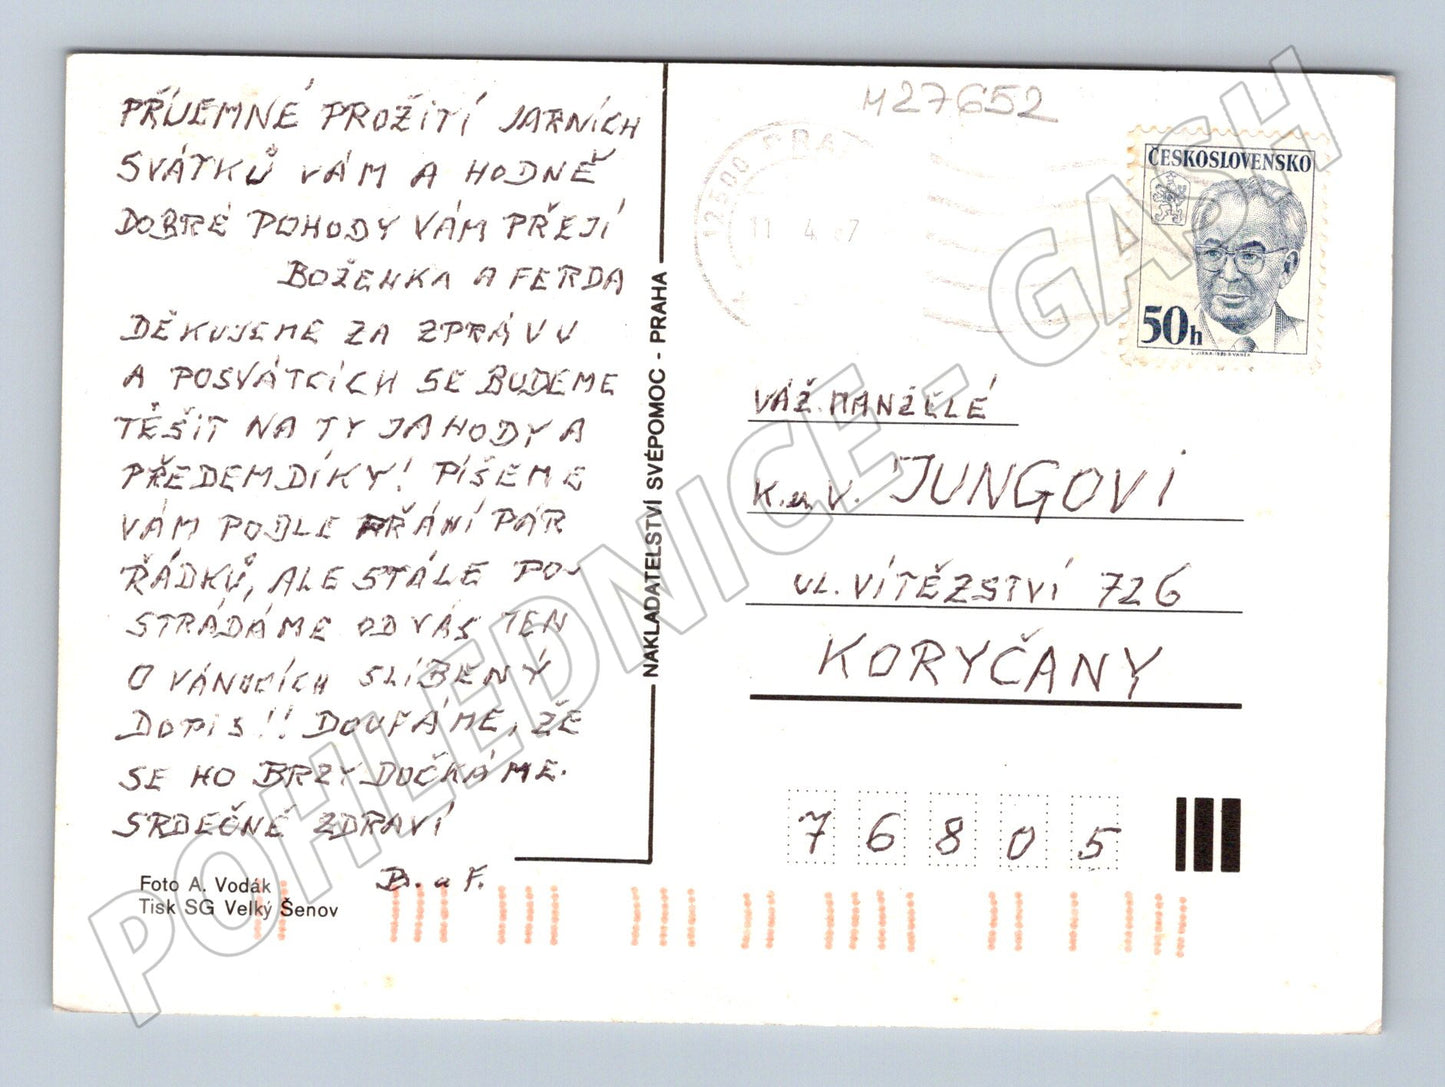 PŘÍJEMNÉ PROŽITÍ JARNÍCH
SVÁTKŮ VÁM A HODNĚ
DOBRÉ POHODY VÁM PŘEJÍ
BOŽENKA A FERDA
DĚKUJEME ZA ZPRÁVU
A POSVÁTCÍCH SE BUDEME
TĚŠIT NA TY JAHODY A
PŘEDEM DÍKY! PÍŠEME
VÁM PODLE PŘÁNÍ PÁR
ŘÁDKŮ, ALE STÁLE PO-
STRÁDÁME OD VÁS TEN
O VÁNOCÍCH SLÍBENÝ
DOPIS!! DOUFÁME, ŽE
SE HO BRZY DOČKÁME.
SRDEČNĚ ZDRAVÍ
B. a F.
Foto A. Vodák
Tisk SG Velký Šenov
NAKLADATELSTVÍ SVÉPOMOC - PRAHA
M27652
PRA
11 4 87
ČESKOSLOVENSKO
50h
VÁŽ. MANŽELÉ
K. a V. JUNGOVI
UL. VÍTĚZSTVÍ 726
KORYČANY
76805
POHLEDNICE - GASH